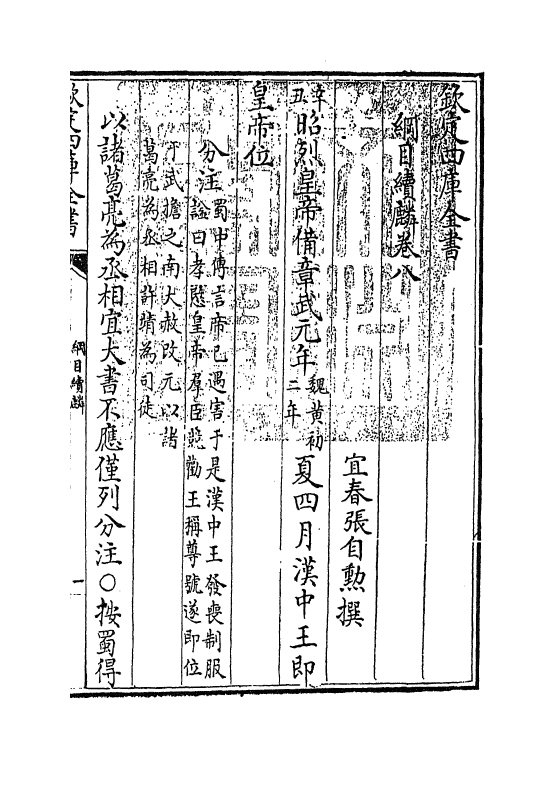 欽定四庫全書
綱目續麟卷八
宜春張自勲撰
辛丑昭烈皇帝備章武元年魏黄初二年夏四月漢中王即
皇帝位
分注蜀中傳言帝已遇害于是漢中王發喪制服
諡曰孝愍皇帝羣臣競勸王稱尊號遂即位
于武擔之南大赦改元以諸
葛亮為丞相許靖為司徒
以諸葛亮為丞相宜大書不應僅列分注○按蜀得
欽定四庫全書
綱目續麟
一